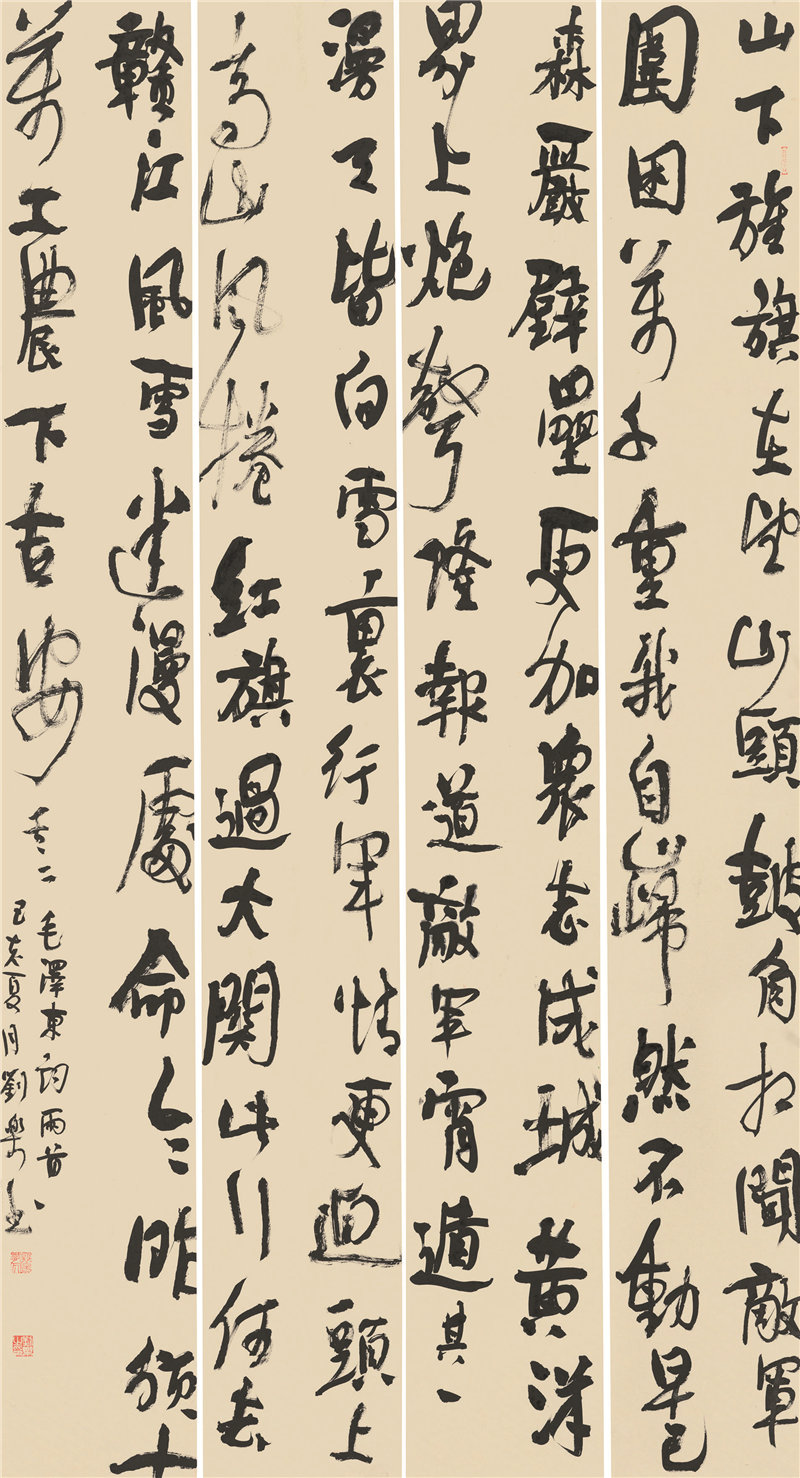 山下旌旗在望山頭鼓角相聞敵軍
圍困萬千重我自巋然不動早已
森嚴壁壘更加眾志成城黃洋
界上炮聲隆報道敵軍宵遁其一
漫天皆白雪裏行軍情更迫頭上
高山風捲紅旗過大關此行何去
贛江風雪迷漫處命令昨頒十
萬工農下吉安其二
毛澤東詞兩首
己亥夏月劉樂書